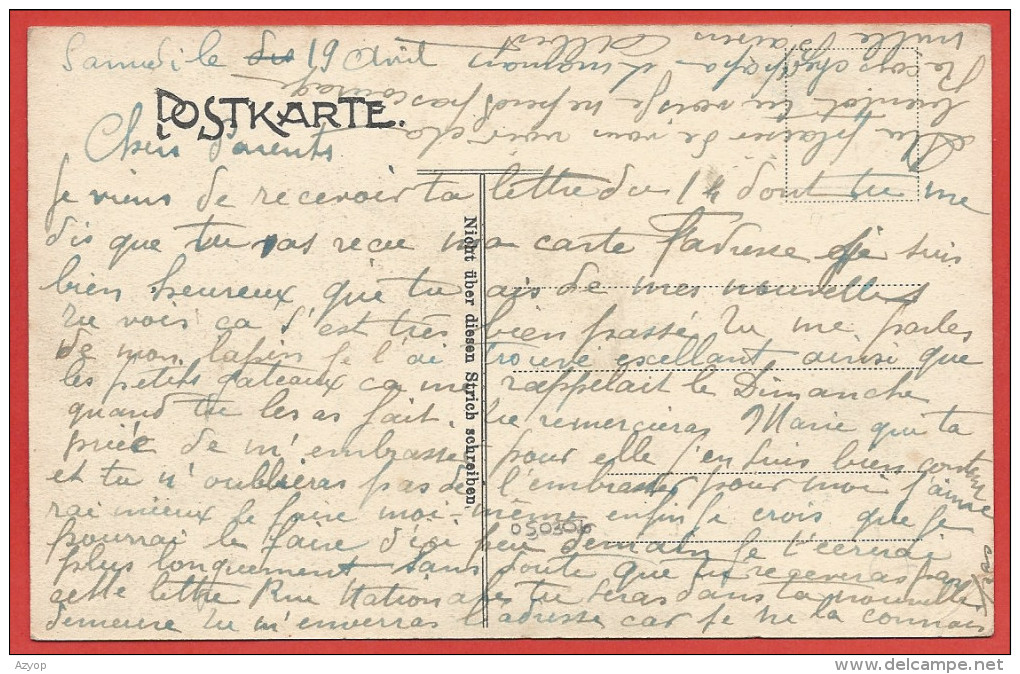 Samedi le 19 Avril
POSTKARTE.
Chers Parents
Je viens de recevoir ta lettre du 14 dont tu me
dis que tu as recu ma carte d'adresse je suis
bien heureux que tu ais de mes nouvelles
tu vois ça s'est très bien passé. Tu me parles
de mon lapin je l'ai trouvé excellant ainsi que
les petits gateaux ca me rappelait le Dimanche
quand tu les as fait. Tu remercieras Marie que ta
priée de m'embrasser pour elle j'en suis bien content
et tu n'oublieras pas de l'embrasser pour moi j'aime
rai mieux le faire moi-même enfin je crois que je
pourrai le faire d'ici peu demain je t'écrirai
plus longuement sans doute que tu receveras pas
cette lettre Rue Nationale tu seras dans ta nouvelle
demeure tu m'enverras l'adresse car je ne la connais
pas
Au plaisir de vous voir
bientot tu vois je ne perds pas courage
Recois cher papa et maman
mille Baisers
Nicht über diesen Strich schreiben.
050306
Azyop
www.delcampe.net